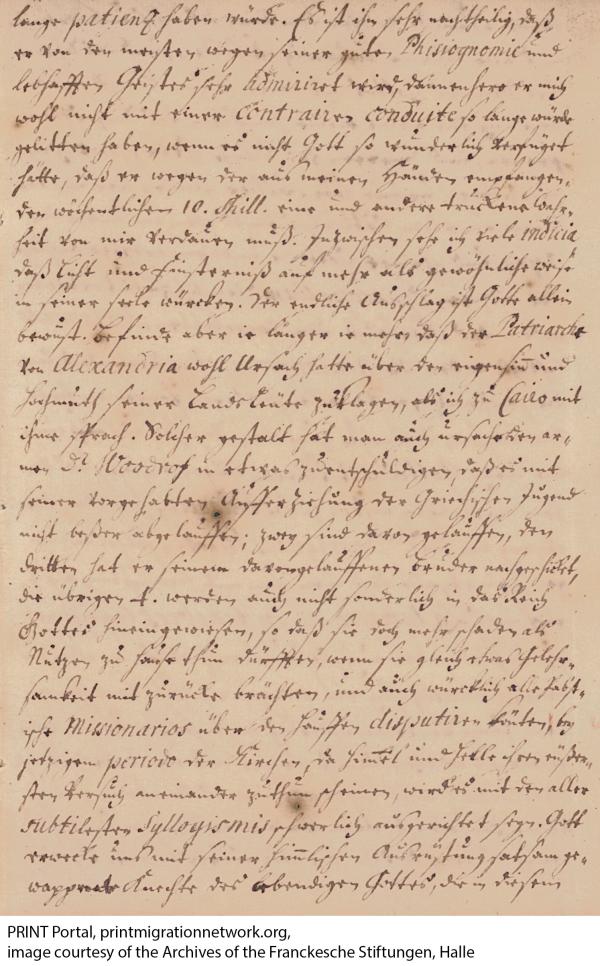 lange patientz haben würde. Es ist ihm sehr nachtheilig, daß
er von den meisten wegen seiner guten Phisiognomie und
lebhafften Geistes sehr admiriret wird, dannenhero er mich
wohl nicht mit einer contrairen conduite so lange würde
gelitten haben, wenn es nicht Gott so wunderlich verfüget
hätte, daß er wegen der aus meinen Händen empfangen,
den wöchentlichen 10. Shill. eine und andere truckene Wahr-
heit von mir verdauen muß. Inzwischen sehe ich viele indicia
daß Licht und Finsterniß auf mehr als gewöhnliche weise
in seiner seele würcken. Der endliche Ausschlag ist Gotte allein
bewust. Befinde aber ie länger ie mehr, daß der Patriarche
von Alexandria wohl Ursach hatte über den eigensinn und
Hochmuth seiner Landsleute zuklagen, als ich zu Cairo mit
ihme sprach. Solcher gestalt hat man auch ursach den ar-
men Dr. Woodrof in etwas zuentschuldigen, daß es mit
seiner vorgehabten Aufferziehung der Griechischen Jugend
nicht beßer abgelauffen; zwey sind davon gelauffen, den
dritten hat er seinem davongelauffenen bruder nachgeschicket,
die übrigen werden auch nicht sonderlich in das Reich
Gottes hineingewiesen, so daß sie doch mehr schaden als
Nutzen zu hause thun dürfften, wenn sie gleich etwas Gelehr-
samkeit mit zurücke brächten, und auch würcklich alle Päbst-
ische Missionarios über den hauffen disputiren könten, bey
jetzigem periodo der Kirchen, da Himel und Helle ihren eußer-
sten versuch aneinander zuthun scheinen, wird es mit den aller
subtilesten Syllogismis schwerlich ausgerichtet seyn. Gott
erwecke uns mit seiner himlischen Ausrüstung satsam ge-
wappnete Knechte des lebendigen Gottes, die in diesem
PRINT Portal, printmigrationnetwork.org,
image courtesy of the Archives of the Franckesche Stiftungen, Halle